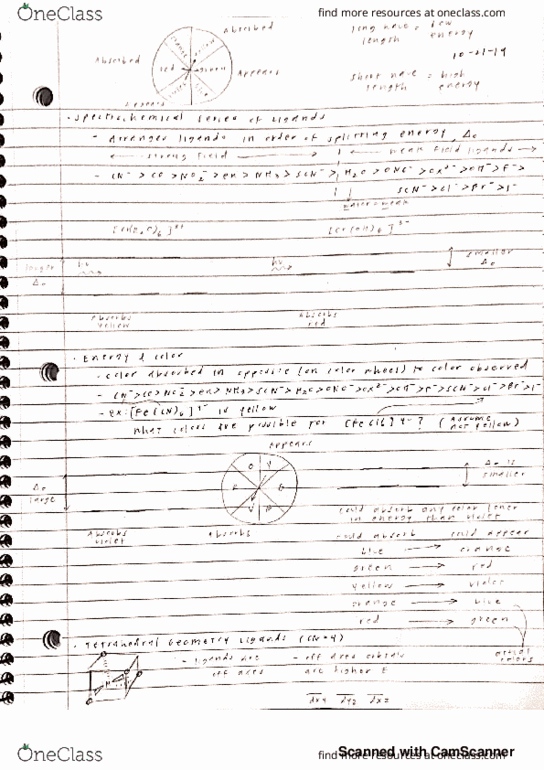 OneClass
find more resources at oneclass.com
Absorbed
long wave = low
length energy
10-21-19
Absorbed
red
green
Appears
short wave = high
length energy
Appears
· Spectrochemical series of Ligands
- Arranges ligands in order of splitting energy, Δo
strong field weak field ligands
- CN⁻ > CO > NO₂⁻ > en > NH₃ > SCN⁻ > H₂O > ONO⁻ > ox²⁻ > OH⁻ > F⁻ >
SCN⁻ > Cl⁻ > Br⁻ > I⁻
larger
Δo
hν
hν
smaller
Δo
Absorbs
yellow
Absorbs
red
· Energy & color
- color absorbed is opposite (on color wheel) to color observed
- CN⁻ > CO > NO₂⁻ > en > NH₃ > SCN⁻ > H₂O > ONO⁻ > ox²⁻ > OH⁻ > F⁻ > SCN⁻ > Cl⁻ > Br⁻ > I⁻
- ex. [Fe(CN)₆]⁴⁻ is yellow
What colors are possible for [FeCl6]⁴⁻? (Assume
not yellow)
Appears
O Y
R G
V B
Δo
large
Δo is
smaller
could absorb any color lower
in energy than violet
Absorbs
violet
Absorbs
could absorb could appear
blue → orange
green → red
yellow → violet
orange → blue
red → green
actual
colors
· Tetrahedral Geometry Ligands (CN=4)
- ligands are - off axes orbitals
off axes are higher E
dxy dyz dxz
OneClass
find more resources at oneclass.com
Scanned with CamScanner